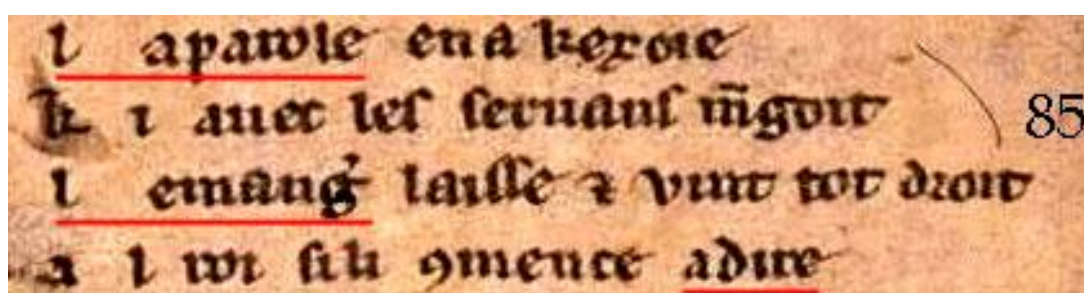 l aparole en a kexoie
k i auec leſ ſeruanſ m̃goit 85
l emang᾽ laiſſe ⁊ vint tot droit
a l roi ſi li ꝯmence adire